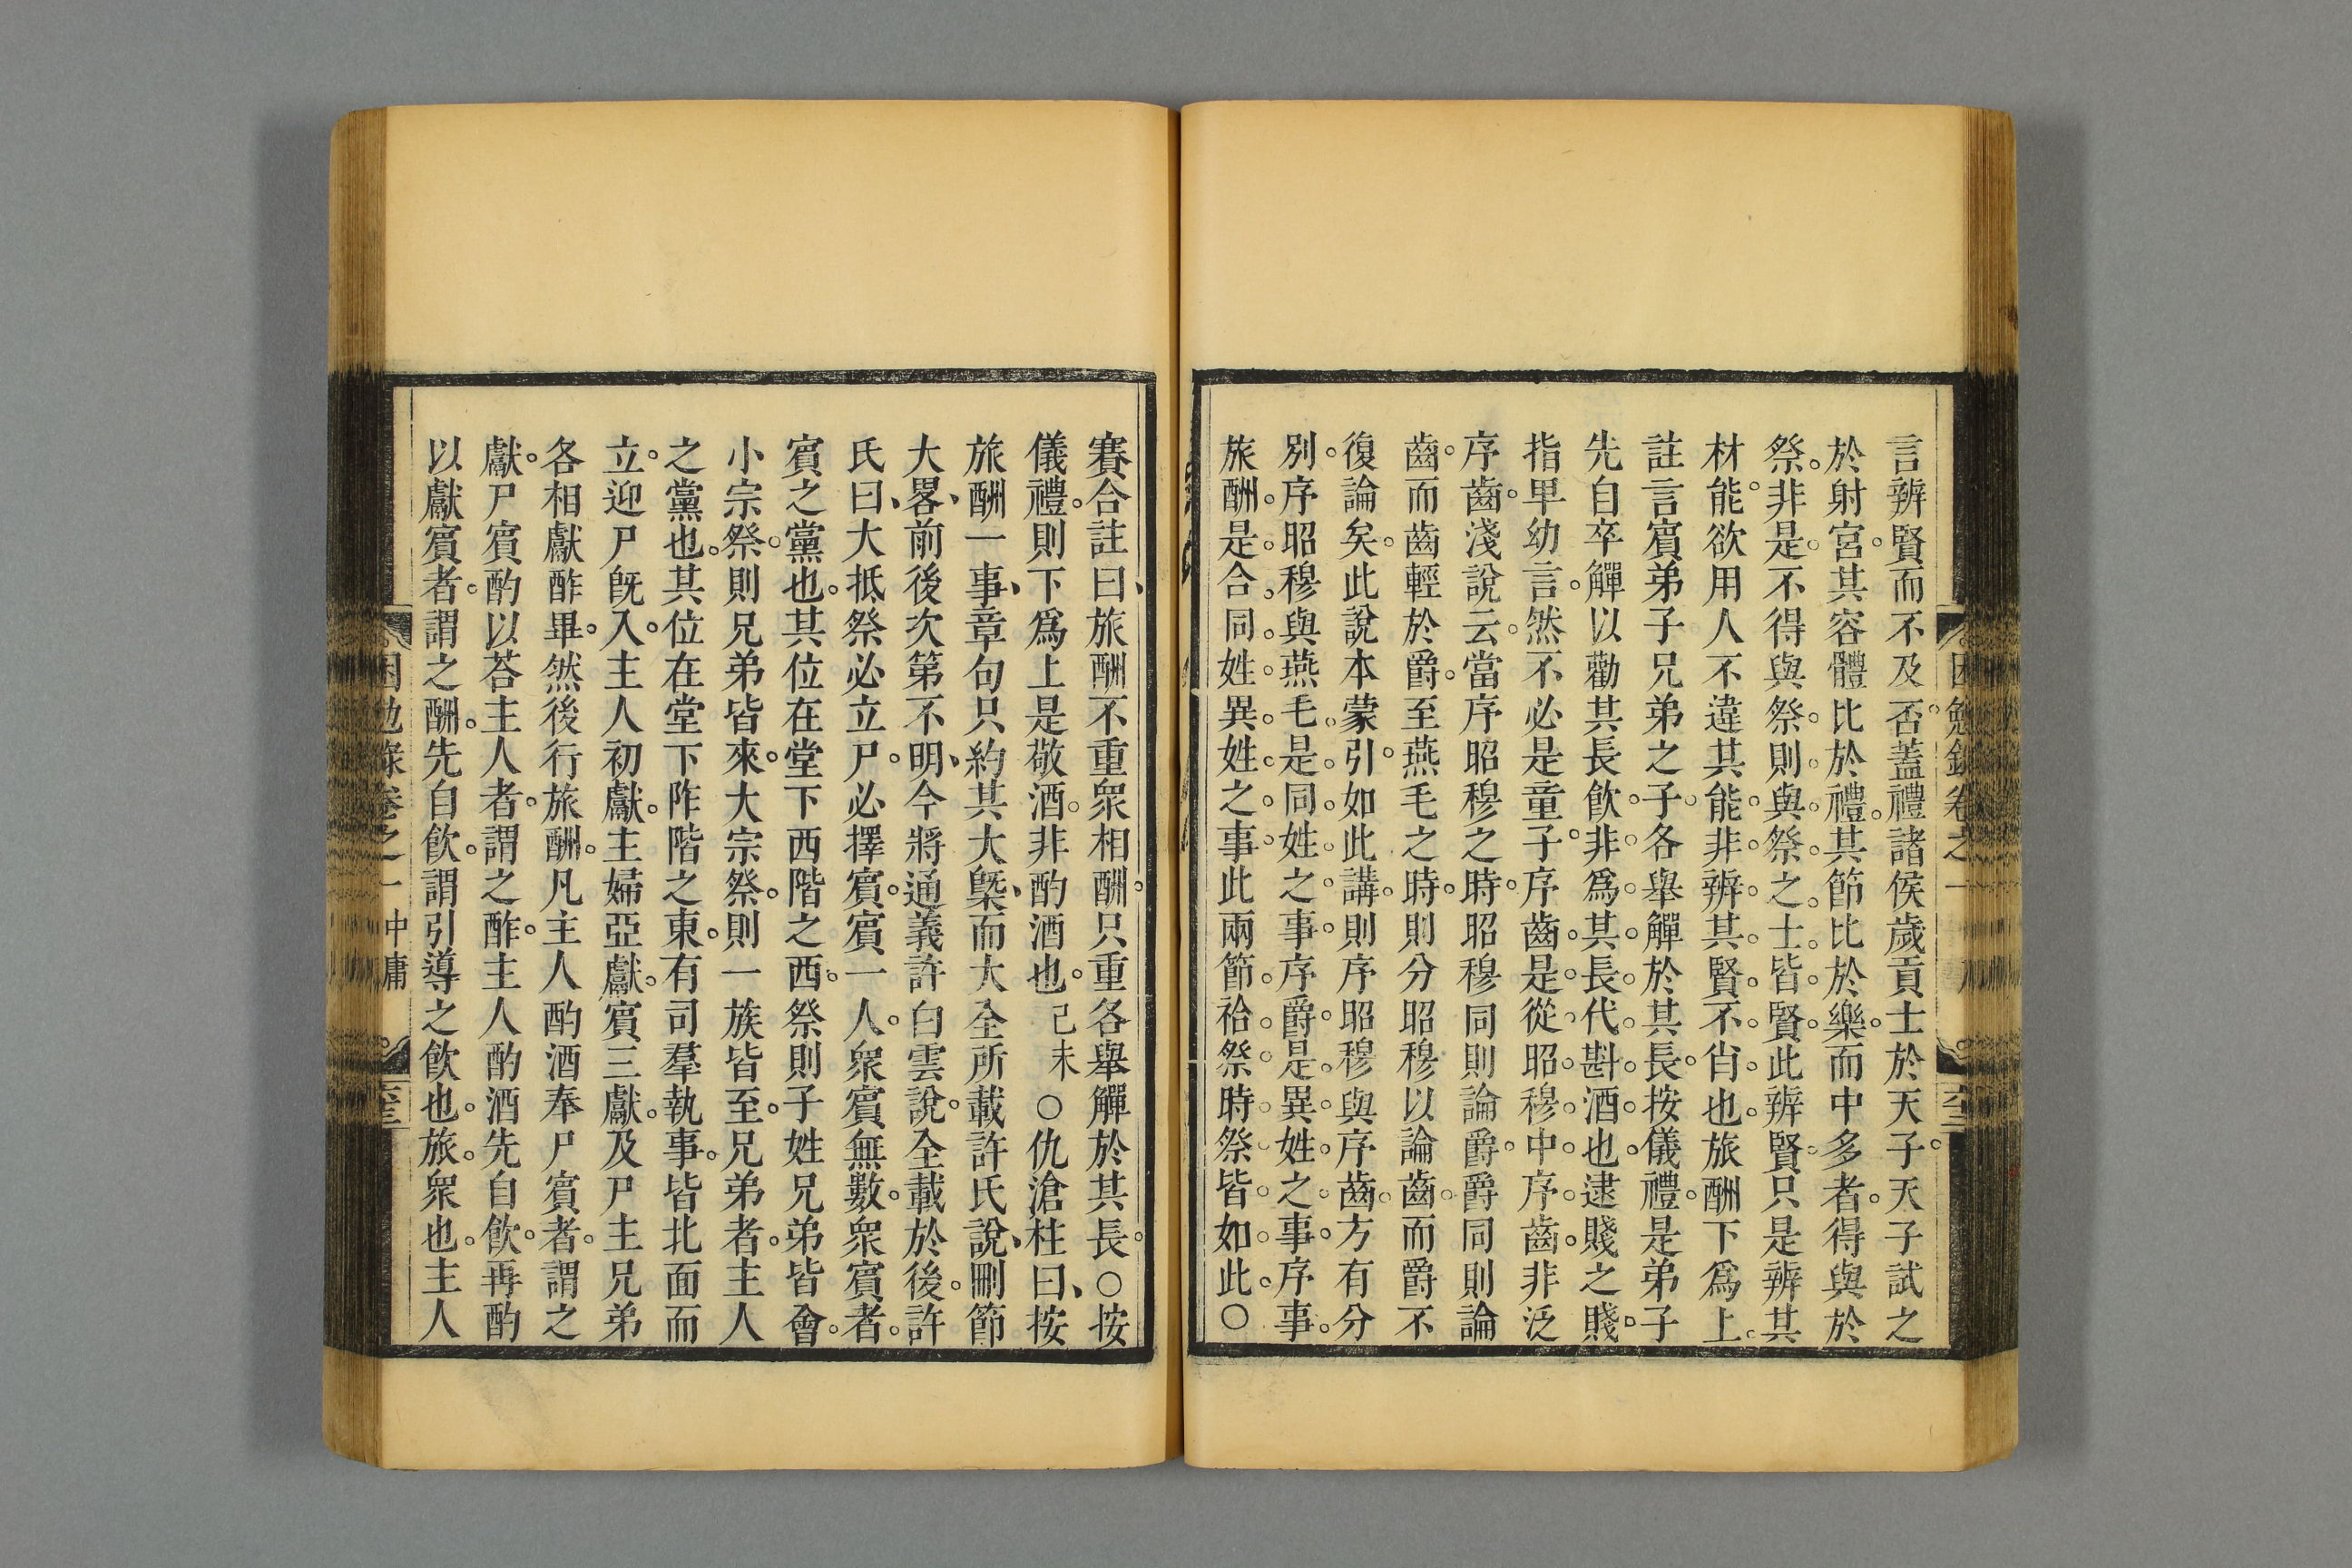 言辨賢而不及否。蓋禮諸侯歲貢士於天子。天子試之
於射宮。其容體比於禮。其節比於樂。而中多者。得與於
祭。非是。不得與祭。則與祭之士皆賢。此辨賢只是辨其
材能。欲用人不違其能。非辨其賢不肖也。旅酬下爲上。
註言賓弟子兄弟之子。各舉觶於其長。按儀禮。是弟子
先自卒觶以勸其長飮。非爲其長代斟酒也。逮賤之賤。
指卑幼言。然不必是童子。序齒。是從昭穆中序齒。非泛
序齒。淺說云。當序昭穆之時。昭穆同則論爵。爵同則論
齒。而齒輕於爵。至燕毛之時。則分昭穆以論齒。而爵不
復論矣。此說本蒙引。如此講。則序昭穆與序齒。方有分
別。序昭穆與燕毛。是同姓之事。序爵。是異姓之事。序事。
旅酬。是合同姓異姓之事。此兩節。祫祭時祭皆如此。○
賽合註曰、旅酬不重衆相酬。只重各舉觶於其長。○按
儀禮。則下爲上是敬酒。非酌酒也。己未 ○仇滄柱曰、按
旅酬一事、章句只約其大槩、而大全所載許氏說、刪節
大畧、前後次第不明、今將通義許白雲說。全載於後。許
氏曰、大抵祭必立尸。必擇賓。賓一人。衆賓無數。衆賓者。
賓之黨也。其位在堂下西階之西。祭則子姓兄弟皆會。
小宗祭。則兄弟皆來。大宗祭。則一族皆至。兄弟者。主人
之黨也。其位在堂下阼階之東。有司羣執事。皆北面而
立。迎尸旣入。主人初獻。主婦亞獻。賓三獻。及尸主兄弟
各相獻酢畢。然後行旅酬。凡主人酌酒奉尸賓者。謂之
獻。尸賓酌以荅主人者。謂之酢。主人酌酒先自飮。再酌
以獻賓者。謂之酬。先自飮。謂引導之飮也。旅。衆也。主人
中庸